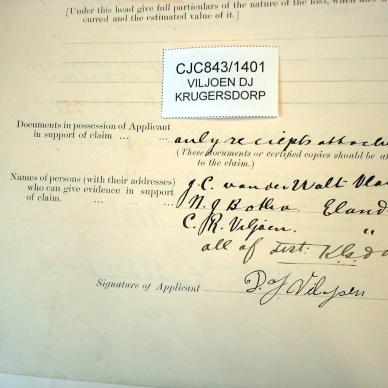 [Under this head give full particulars of the nature of the loss, when
curred and the estimated value of it.]
CJC843/1401
VILJOEN DJ
KRUGERSDORP
Documents in possession of Applicant
in support of claim ... ... only reciepts attache
(These documents or certified copies should be at
to the claim.)
Names of persons (with their addresses) J. C. van der Walt Vla
who can give evidence in support N. J Botha Eland
of claim. ... ... ... C. R. Viljoen. "
all of Dist:
Signature of Applicant D. J. Viljoen